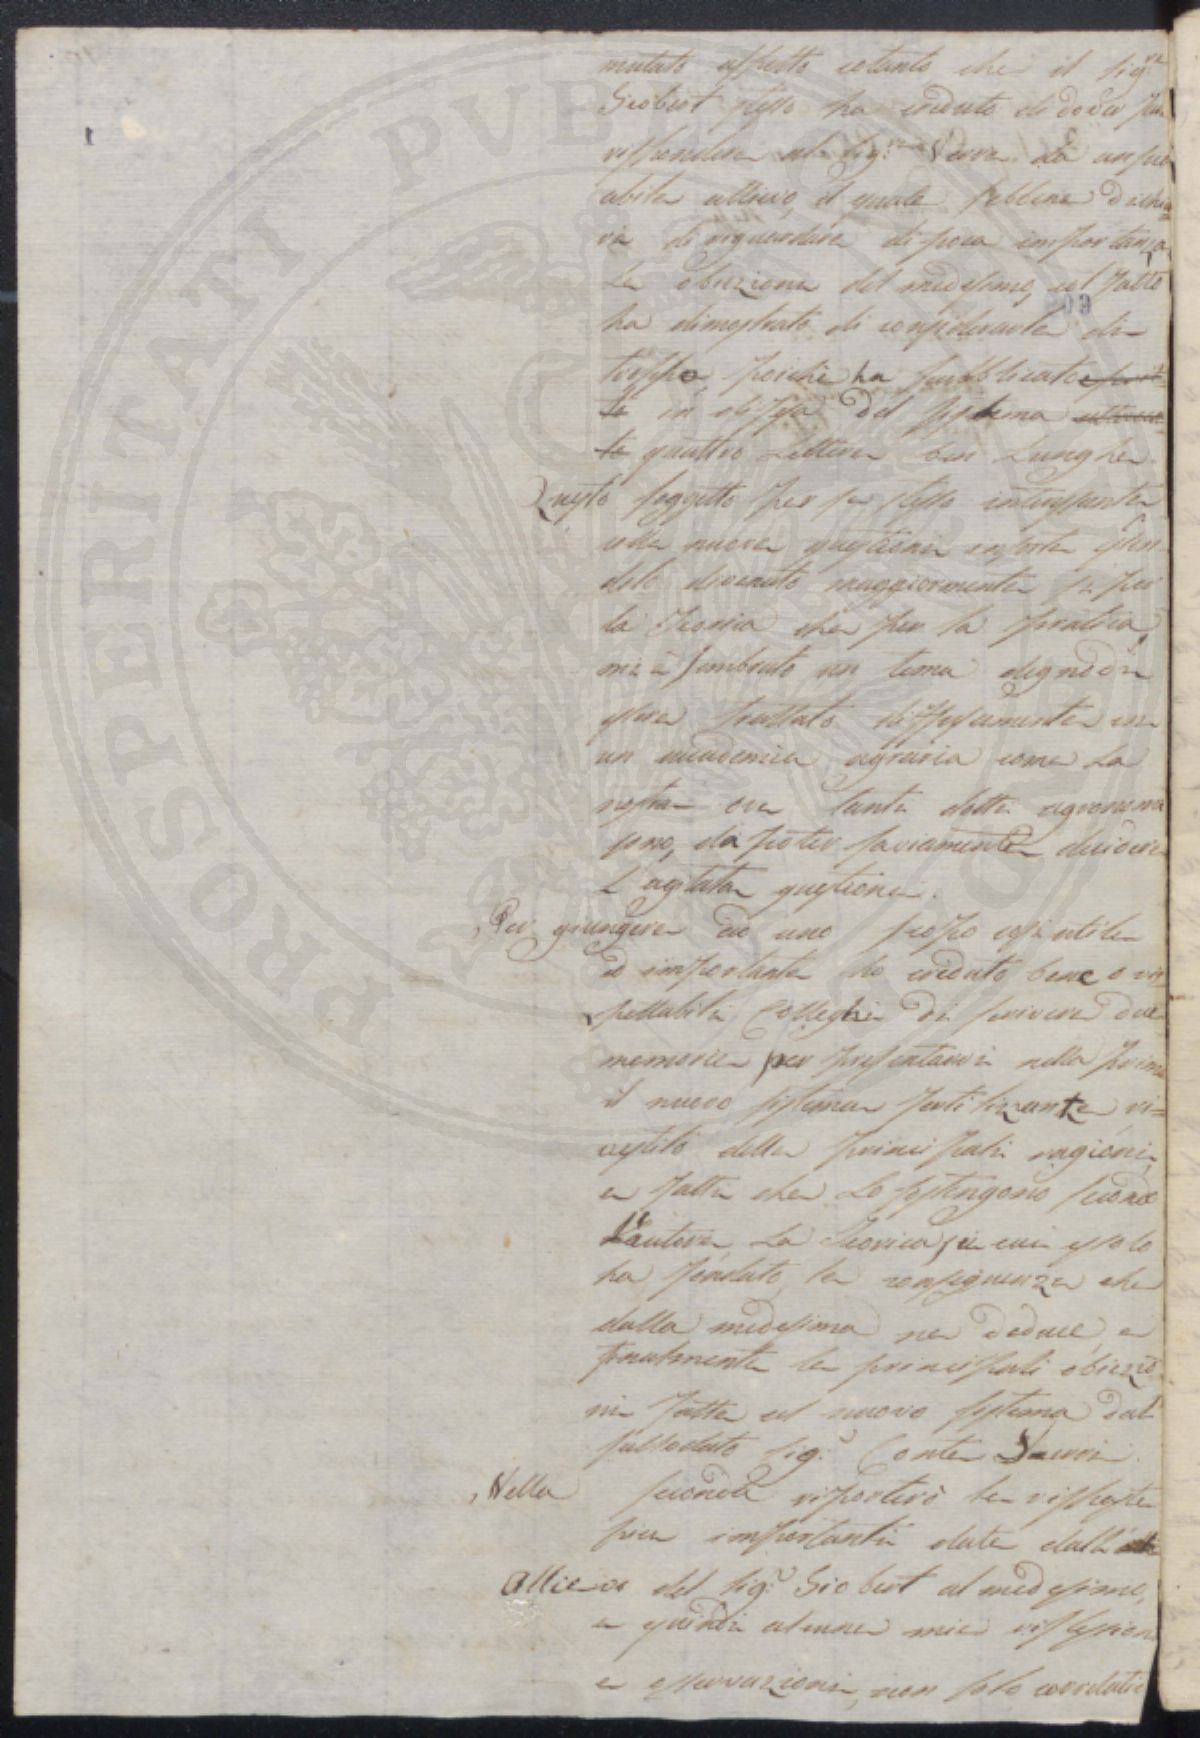 mutato aspetto cotanto che il Sig.re
Giobert stesso ha creduto di dover far
rispondere al Sig.r Verri da un suo
abile allievo, il quale sebbene dichia
ra di riguardare di poca importanza
le obiezioni del medesimo, col fatto
ha dimostrato di considerarle di
troppo, poiché ha pubblicate
in difesa del sistema
quattro Lettere ben lunghe.
Questo soggetto per se stesso interessante
colle nuove questioni insorte essen
dolo divenuto maggiormente sì per
la Teoria che per la pratica,
mi è sembrato un tema degno di
essere trattato diffusamente in
un accademia agraria come la
nostra ove tanti dotti agronomi
sono, da poter saviamente decidere
l'agitata questione.
Per giungere ad uno scopo così utile
ed importante ho creduto bene o ri
spettabili Colleghi di scrivere due
memorie per presentarvi nella prima
il nuovo sistema fertilizzante ri=
vestito delle principali ragioni,
e fatti che lo sostengono secondo
l'autore, la Teorica su cui esso lo
ha fondato, le conseguenze che
dalla medesima ne deduce e
finalmente le principali obiezio
ni fatte al nuovo sistema dal
sullodato Sig.r Conte Verri.
Nella seconda riporterò le risposte
più importanti date dall'
Allievo del Sig.r Giobert al medesimo,
e quindi alcune mie riflessioni
e osservazioni, non solo correlative
PROSPERITATI PVBLICAE